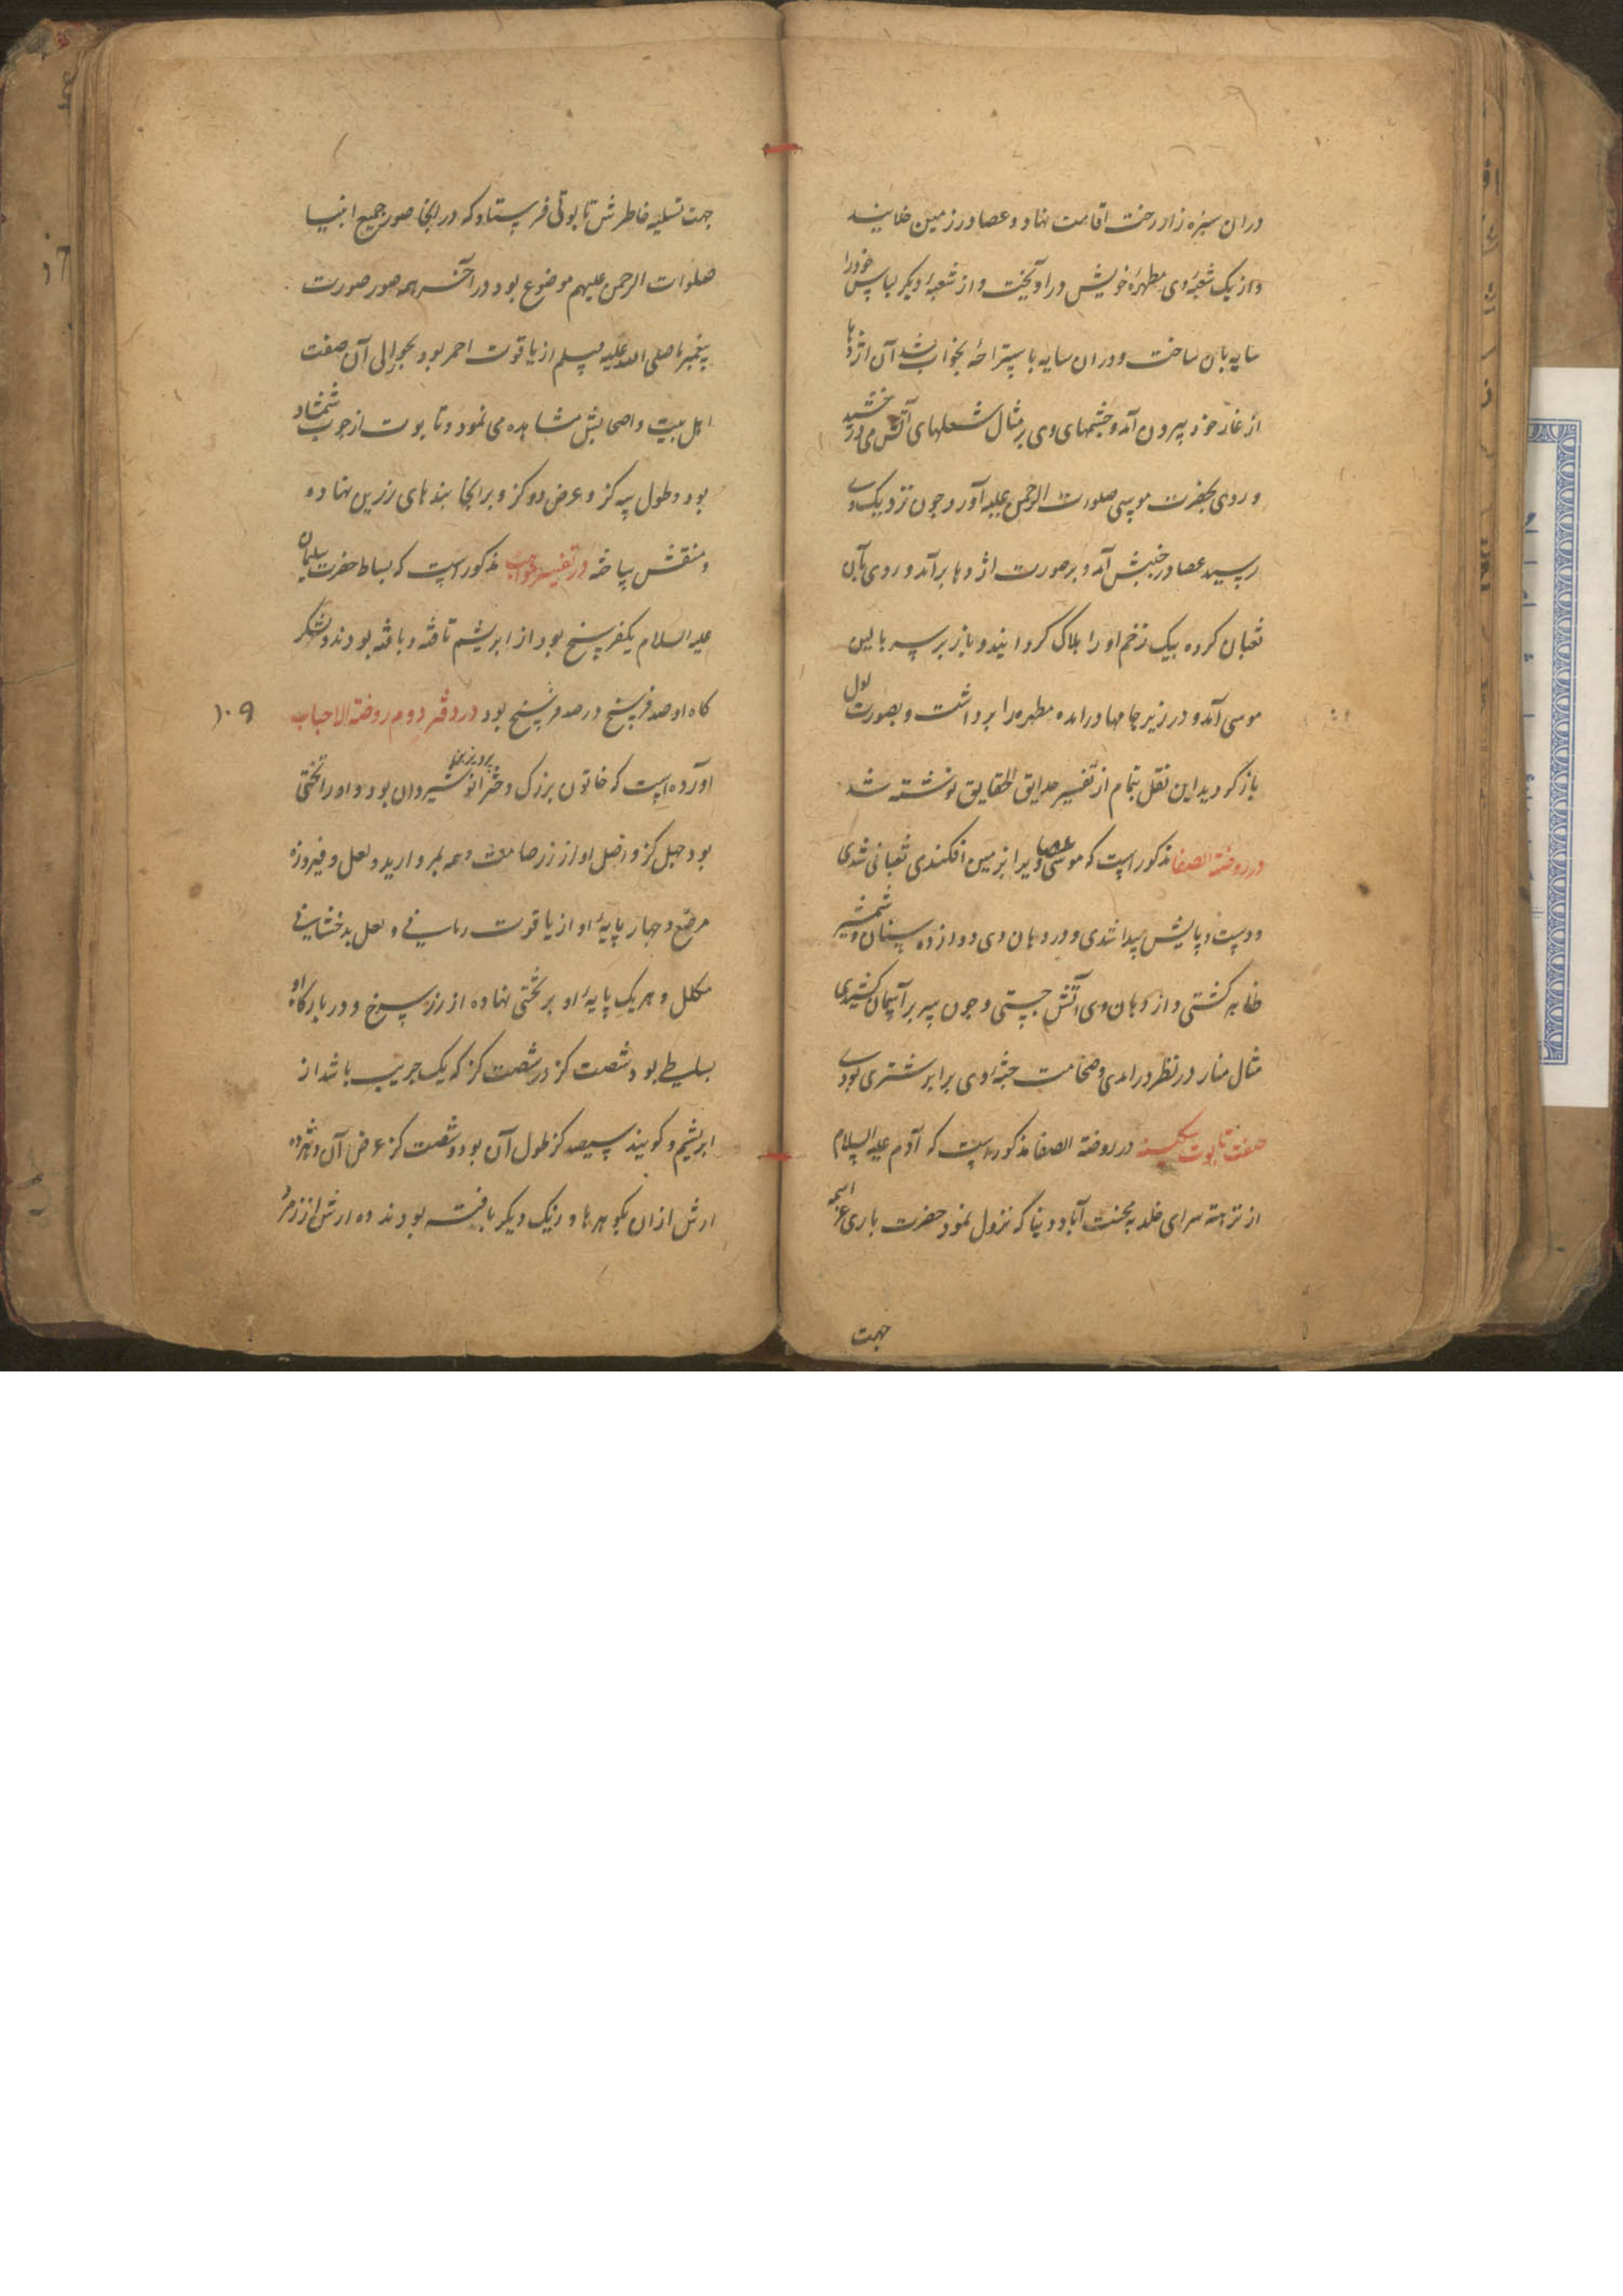 دران سبزه زار رخت اقامت نهاد و عصا در زمین خلانید
و از یک شعبهٔ وی مطهرهٔ خویش در آویخت و از شعبهٔ دیکر لباس خود را
سایه بان ساخت و دران سایه باستراحهٔ بخواب شد آن اژدها
از غار خود بیرون آمد و چشمهای وی بر مثال شعلهای آتش می درخشید
و روی بحضرت موسی صلوات الرحمن علیه آورد چون نزدیک وی
رسید عصا در جنبش آمد و بر صورت اژدها برآمد و روی بآن
ثعبان کرده بیک زخم او را هلاک کردانید و باز بر سر بالین
موسی آمد و در زیر جامها درامده مطهره را برداشت و بصورت اول
باز کردید این نقل بتمام از تفسیر حدایق الحقایق نوشته شد
در روضة الصفا مذکور است که موسی عصا را بزمین افکندی ثعبانی شدی
و دست و پایش پیدا شدی و در دهان وی دوازده سنان و شمشیر
ظاهر کشتی و از دهان وی آتش جستی و چون سر بر آسمان کشیدی
مثال منار در نظر درامدی و ضخامت جثهٔ وی برابر شتری بودی
صفت تابوت سکینه در روضة الصفا مذکور است که آدم علیه السلام
از نزهة سرای خلد به محنت آباد دنیا که نزول نمود حضرت باری عز اسمه
جهت
جهت تسلیه خاطرش تابوتی فرستاد که در انجا صور جمیع انبیا
صلوات الرحمن علیهم موضوع بود در آخر همه صور صورت
پیغمبر ما صلی الله علیه وسلم از یاقوت احمر بود بحوالی آن صفت
اهل بیت و اصحابش مشاهده می نمود و تابوت از چوب شمشاد
بود و طول سه کز و عرض دو کز و بر انجا بندهای زرین نهاده
و منقش ساخته در تفسیر مواهب مذکور است که بساط حضرت سلیمان
علیه السلام یکفرسخ بود از ابریشم تافته و بافته بودند و لشکر
کاه او صد فرسخ در صد فرسخ بود در دفتر دوم روضة الاحباب
۱۰۹
آورده است که خاتون بزرک دختر انوشیروان بود و او را تختی
بود چهل کز و اصل او از زر صامت و همه بمروارید و لعل و فیروزه
مرصّع و چهار پایهٔ او از یاقوت رمانی و لعل بدخشانی
مکلل و هر یک پایهٔ او بر تختی نهاده از زر سرخ و در بارکاه او
بسیطی بود شصت کز در شصت کز که یک جریب باشد از
ابریشم و کویند سیصد کز طول آن بود و شصت کز عرض آن و هر ده
ارش ازان بکوهرها و رنک دیکر بافته بودند ده ارش از زمرد